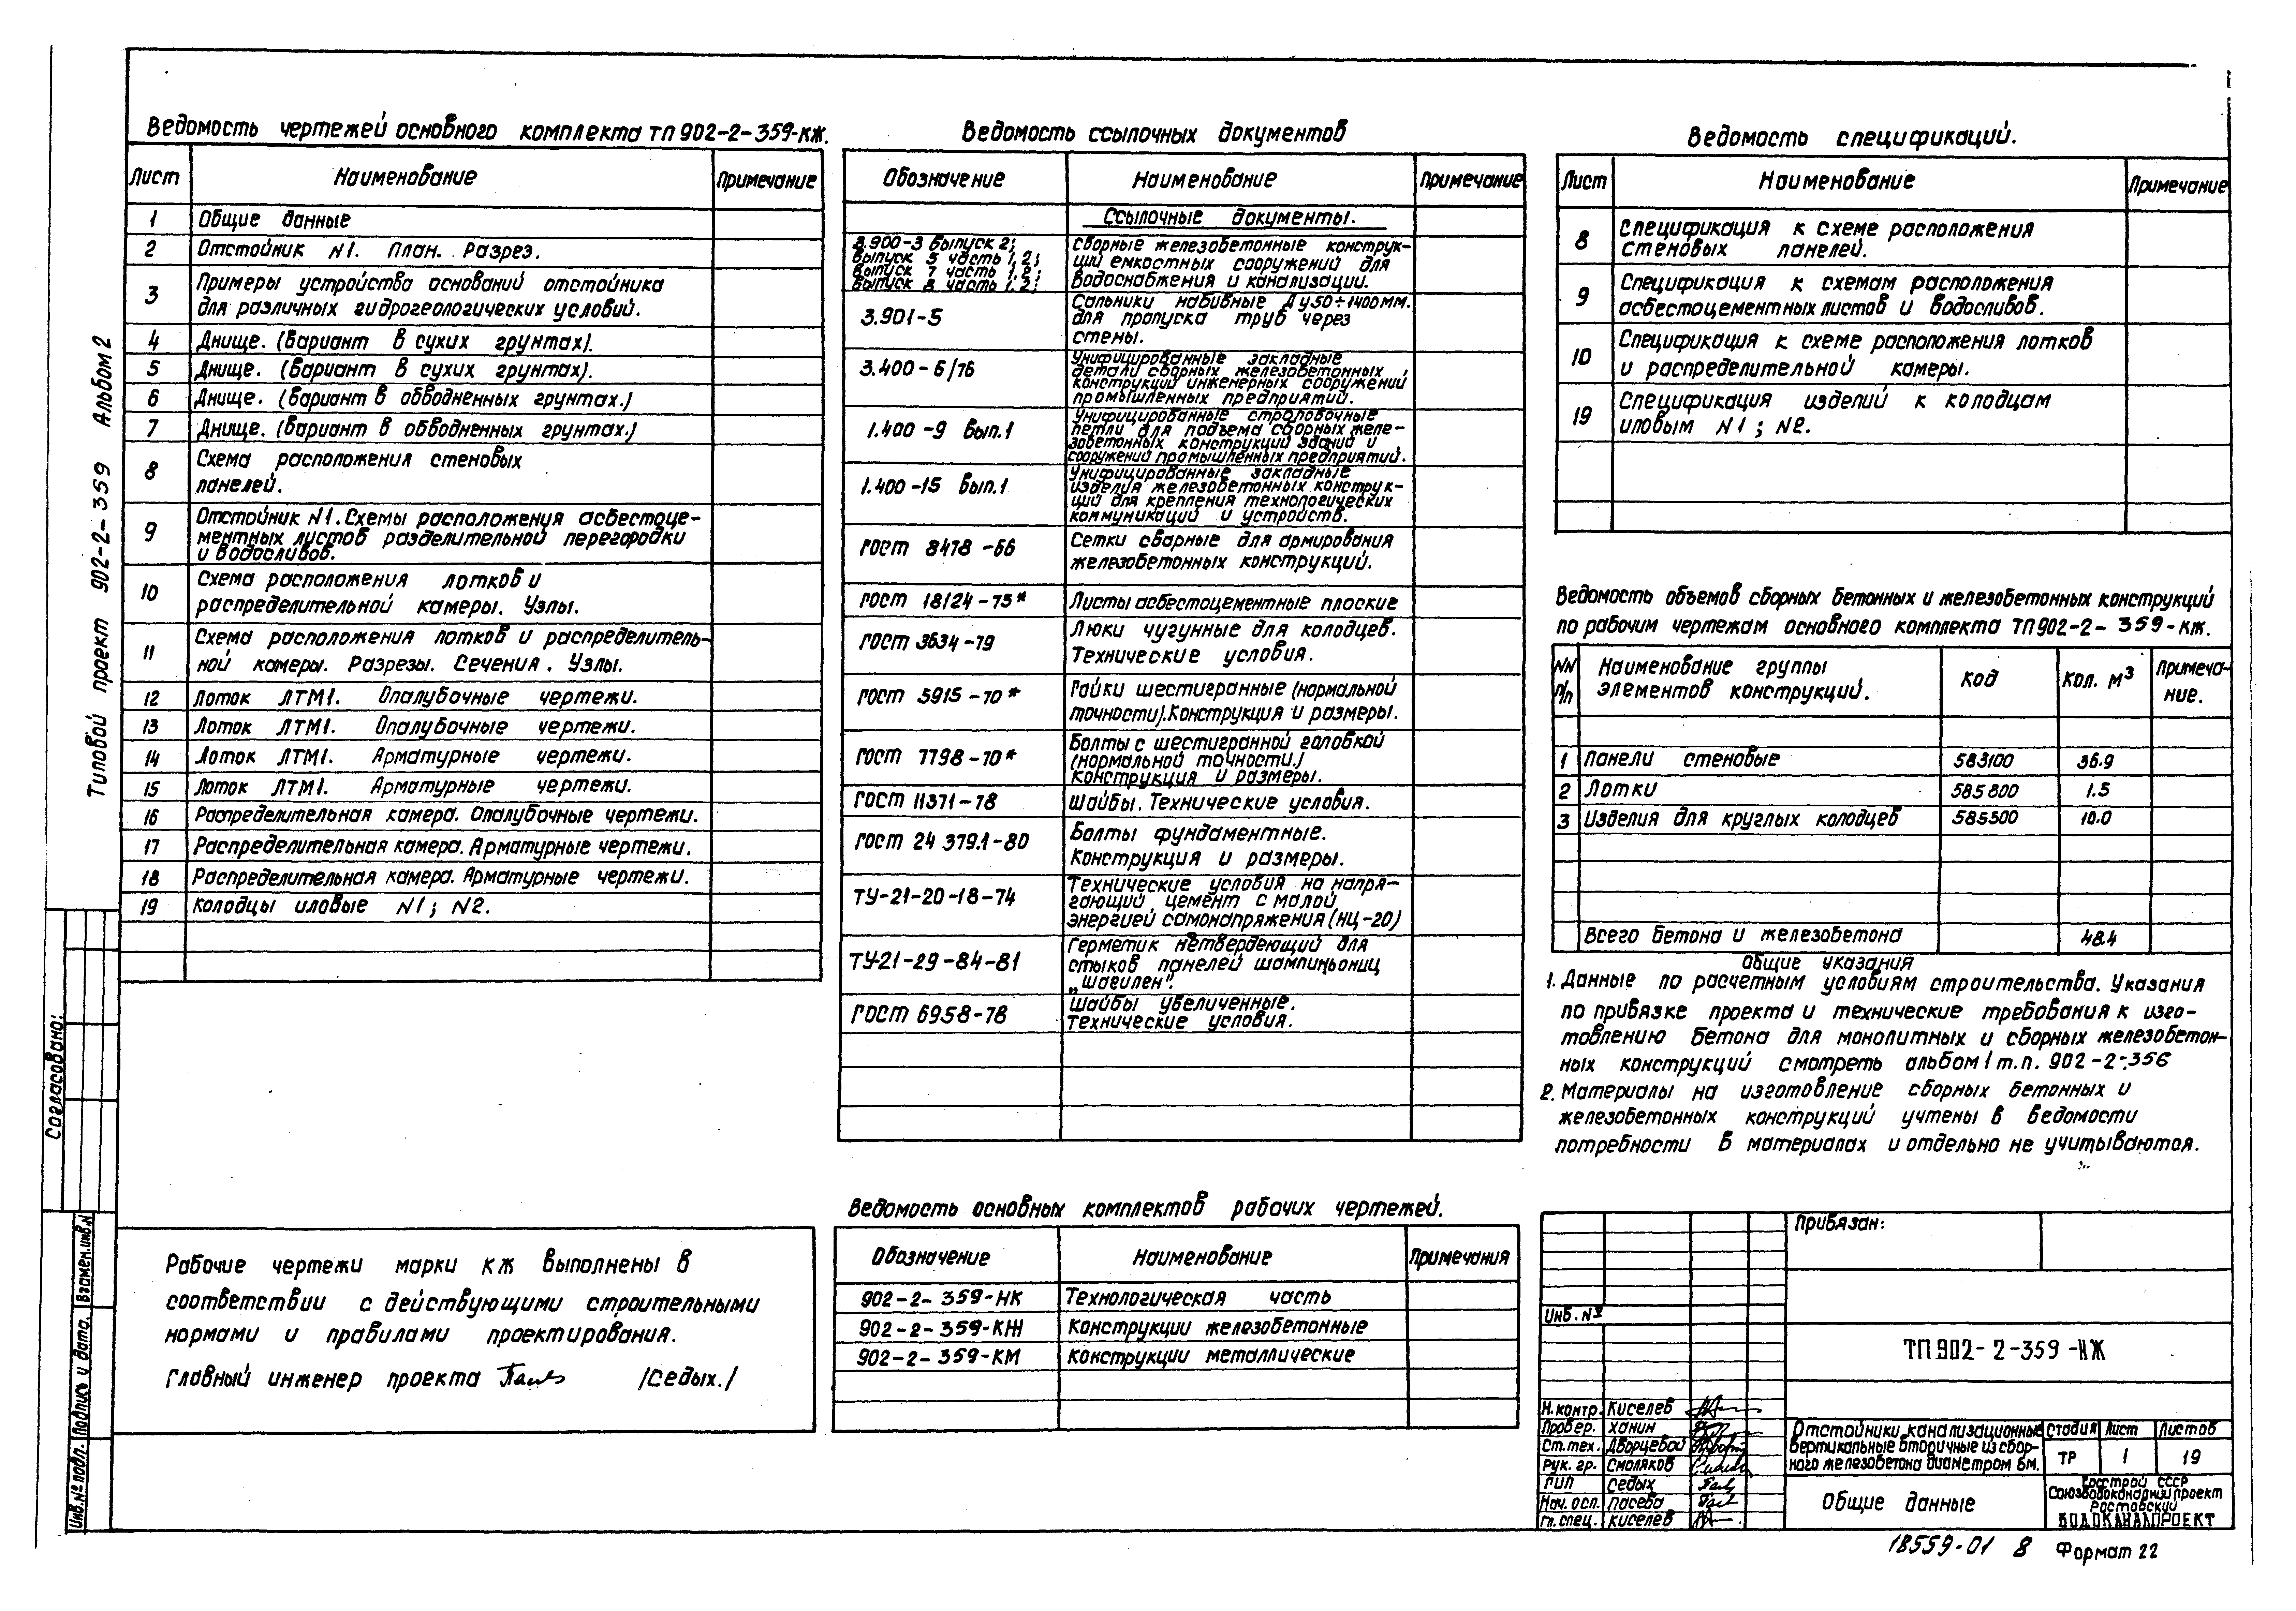 Ведомость чертежей основного комплекта ТП 902-2-359-КЖ.
Лист Наименование Примечание
1 Общие данные
2 Отстойник N1. План. Разрез.
3 Примеры устройства оснований отстойника
для различных гидрогеологических условий.
4 Днище. (Вариант в сухих грунтах).
5 Днище. (Вариант в сухих грунтах).
6 Днище. (Вариант в обводненных грунтах.)
7 Днище. (Вариант в обводненных грунтах.)
8 Схема расположения стеновых
панелей.
9 Отстойник N1. Схемы расположения асбестоце-
ментных листов разделительной перегородки
и водосливов.
10 Схема расположения лотков и
распределительной камеры. Узлы.
11 Схема расположения лотков и распределитель-
ной камеры. Разрезы. Сечения. Узлы.
12 Лоток ЛТМ1. Опалубочные чертежи.
13 Лоток ЛТМ1. Опалубочные чертежи.
14 Лоток ЛТМ1. Арматурные чертежи.
15 Лоток ЛТМ1. Арматурные чертежи.
16 Распределительная камера. Опалубочные чертежи.
17 Распределительная камера. Арматурные чертежи.
18 Распределительная камера. Арматурные чертежи.
19 Колодцы иловые N1; N2.
Рабочие чертежи марки КЖ выполнены в
соответствии с действующими строительными
нормами и правилами проектирования.
Главный инженер проекта /Седых./
Ведомость ссылочных документов
Обозначение Наименование Примечание
Ссылочные документы.
3.900-3 Выпуск 2;
Выпуск 5 часть 1,2;
Выпуск 7 часть 1,2;
Выпуск 8 часть 1,2;
Сборные железобетонные конструк-
ций емкостных сооружений для
водоснабжения и канализации.
3.901-5
Сальники набивные Ду50÷1400мм.
для пропуска труб через
стены.
3.400-6/76
Унифицированные закладные
детали сборных железобетонных
конструкций инженерных сооружений
промышленных предприятий.
1.400-9 Вып.1
Унифицированные строповочные
петли для подъема сборных желе-
зобетонных конструкций зданий и
сооружений промышленных предприятий.
1.400-15 Вып.1
Унифицированные закладные
изделия железобетонных конструк-
ций для крепления технологических
коммуникаций и устройств.
ГОСТ 8478-66
Сетки сварные для армирования
железобетонных конструкций.
ГОСТ 18124-75* Листы асбестоцементные плоские
ГОСТ 3634-79
Люки чугунные для колодцев.
Технические условия.
ГОСТ 5915-70*
Гайки шестигранные (нормальной
точности). Конструкция и размеры.
ГОСТ 7798-70*
Болты с шестигранной головкой
(нормальной точности.)
Конструкция и размеры.
ГОСТ 11371-78 Шайбы. Технические условия.
ГОСТ 24 379.1-80
Болты фундаментные.
Конструкция и размеры.
ТУ-21-20-18-74
Технические условия на напря-
гающий цемент с малой
энергией самонапряжения (НЦ-20)
ТУ-21-29-84-81
Герметик нетвердеющий для
стыков панелей шампиньониц
„Шагилен".
ГОСТ 6958-78
Шайбы увеличенные.
Технические условия.
Ведомость основных комплектов рабочих чертежей.
Обозначение Наименование Примечания
902-2-359-НК Технологическая часть
902-2-359-КЖ Конструкции железобетонные
902-2-359-КМ Конструкции металлические
Ведомость спецификаций.
Лист Наименование Примечание
8 Спецификация к схеме расположения
стеновых панелей.
9 Спецификация к схемам расположения
асбестоцементных листов и водосливов.
10 Спецификация к схеме расположения лотков
и распределительной камеры.
19 Спецификация изделий к колодцам
иловым N1; N2.
Ведомость объемов сборных бетонных и железобетонных конструкций
по рабочим чертежам основного комплекта ТП 902-2-359-КЖ.
NN п/п Наименование группы элементов конструкций. Код Кол. м³ Примеча-ние.
1 Панели стеновые 583100 36.9
2 Лотки 585800 1.5
3 Изделия для круглых колодцев 585500 10.0
Всего бетона и железобетона 48.4
Общие указания
1. Данные по расчетным условиям строительства. Указания
по привязке проекта и технические требования к изго-
товлению бетона для монолитных и сборных железобетон-
ных конструкций смотреть альбом 1 т.п. 902-2-356
2. Материалы на изготовление сборных бетонных и
железобетонных конструкций учтены в ведомости
потребности в материалах и отдельно не учитываются.
Привязан:
Инв. №
ТП 902-2-359-КЖ
Н.контр. Киселев
Провер. Ханин
Ст.тех. Дворцевой
Рук. гр. Смоляков
ГИП Седых
Нач. осп. Пасева
Гл. спец. Киселев
Отстойники канализационные
вертикальные вторичные из сбор-
ного железобетона диаметром 6м.
Стадия Лист Листов
ТР 1 19
Общие данные
Госстрой СССР
Союзводоканалниипроект
Ростовский
ВОДОКАНАЛПРОЕКТ
18559-01 8 Формат 22
Типовой проект 902-2-359 Альбом 2
Согласовано:
Взамен.инв.N
Подпись и дата.
Инв.№ подл.